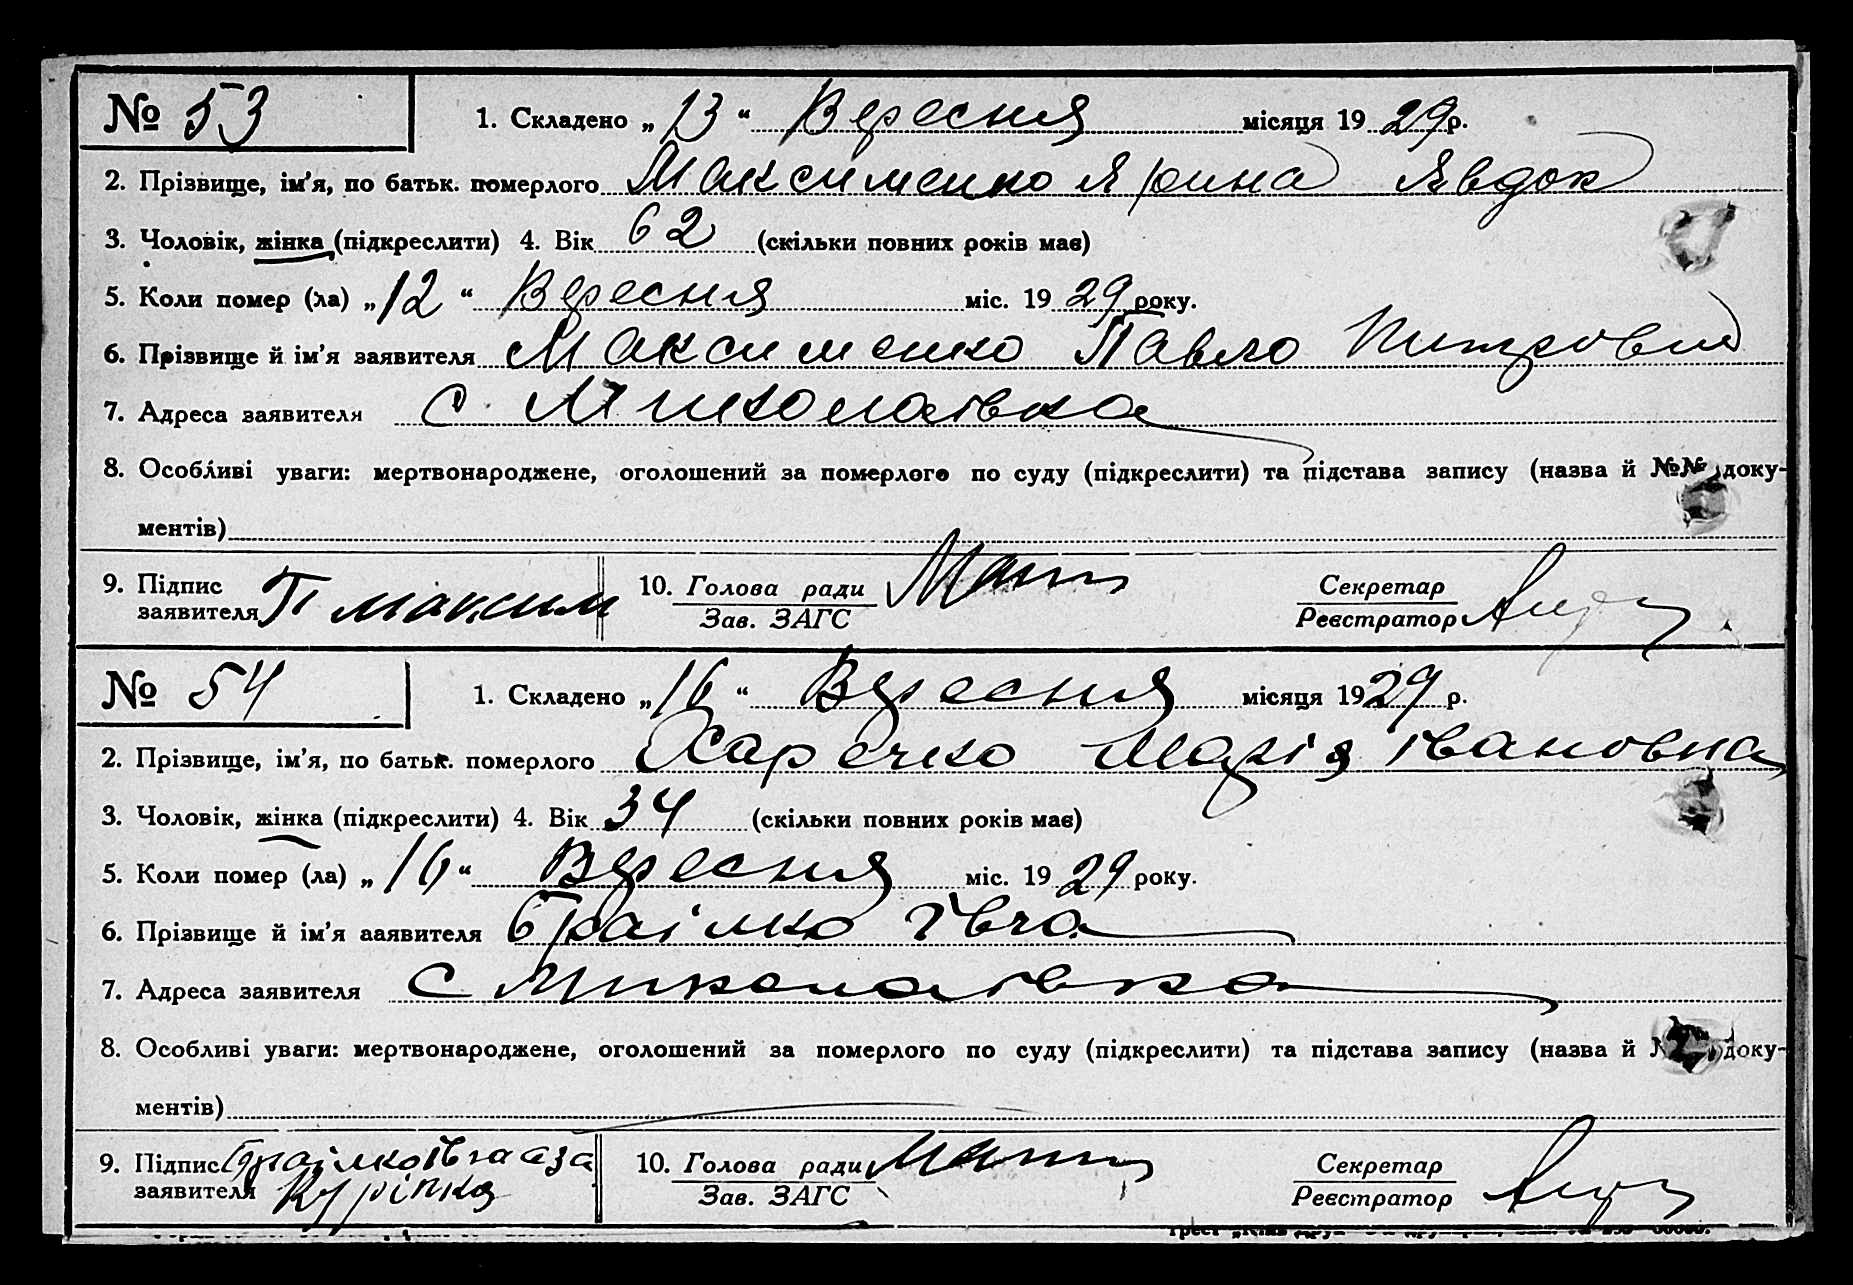 № 53
1. Складено „13“ Вересня місяця 1929р.
2. Прізвище, ім’я, по батьк. померлого Максименко Ярина Явдок
3. Чоловік, жінка (підкреслити) 4. Вік 62 (скільки повних років має)
5. Коли помер (ла) „12“ Вересня міс. 1929 року.
6. Прізвище й ім’я заявителя Максименко Павло
7. Адреса заявителя с. Миколаівка
8. Особливі уваги: мертвонароджене, оголошений за померлого по суду (підкреслити) та підстава запису (назва й №№ доку-
ментів)
9. Підпис заявителя П Максим
10. Голова ради
Зав. ЗАГС
Секретар
Реєстратор
№ 54
1. Складено „16“ Вересня місяця 1929 р.
2. Прізвище, ім’я, по батьк. померлого Харечко Марія Івановна
3. Чоловік, жінка (підкреслити) 4. Вік 34 (скільки повних років має)
5. Коли помер (ла) „16“ Вересня міс. 1929 року.
6. Прізвище й ім’я ааявителя Браілко Івга
7. Адреса заявителя с Миколаівка
8. Особливі уваги: мертвонароджене, оголошений за померлого по суду (підкреслити) та підстава запису (назва й доку-
ментів)
9. Підпис заявителя Браілко Івга а за
10. Голова ради
Зав. ЗАГС
Секретар
Реєстратор